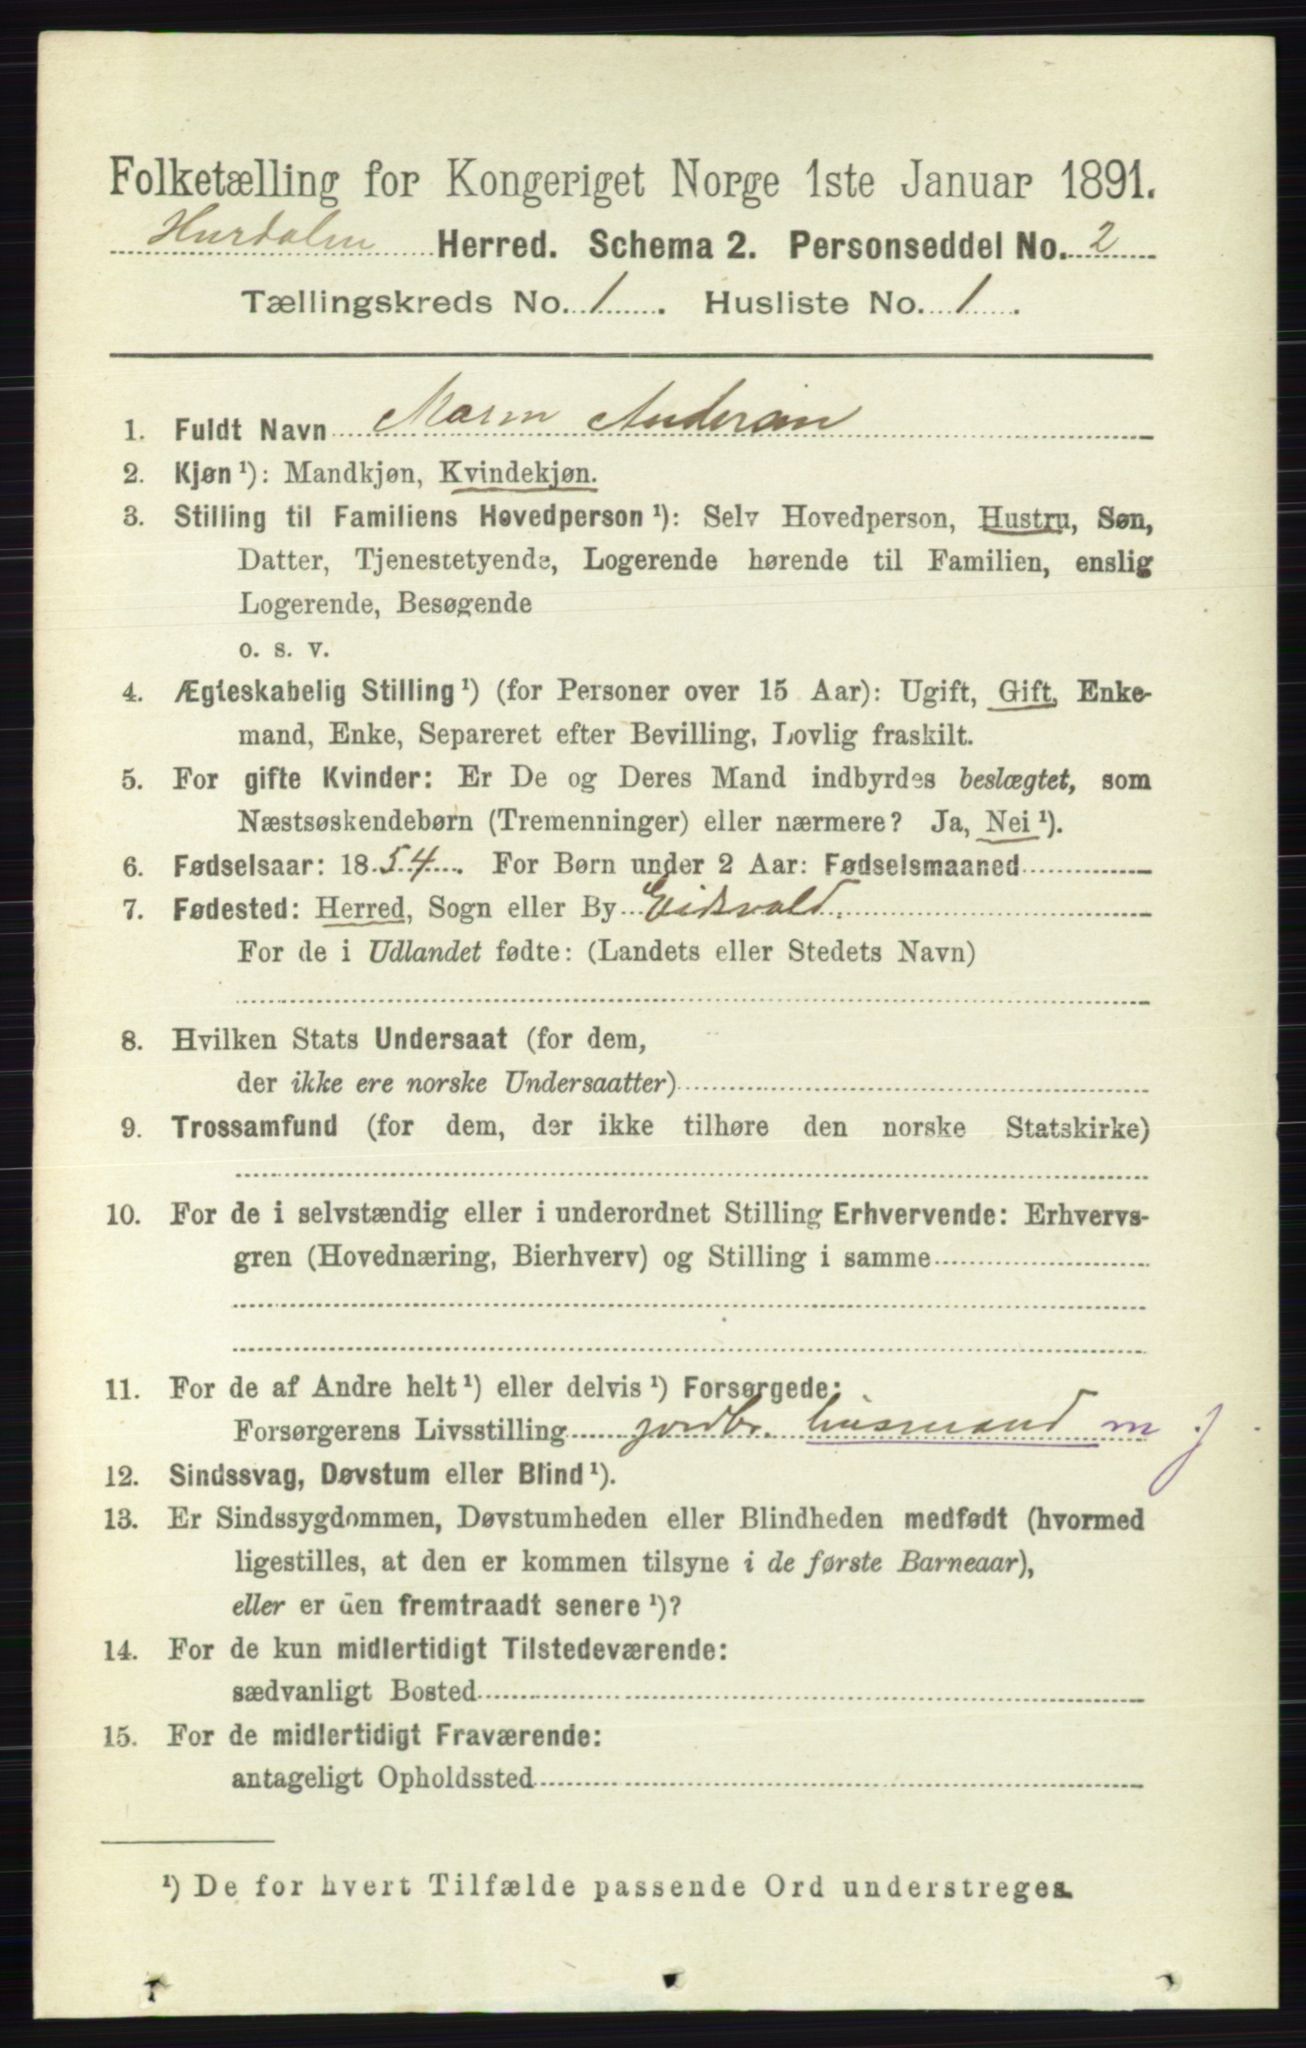 Folketælling for Kongeriget Norge 1ste Januar 1891.
Hurdalen Herred. Schema 2. Personseddel No. 2
Tællingskreds No. 1. Husliste No. 1.
1. Fuldt Navn Maren Andersen
2. Kjøn ¹): Mandkjøn, Kvindekjøn.
3. Stilling til Familiens Hovedperson ¹): Selv Hovedperson, Hustru, Søn,
Datter, Tjenestetyende, Logerende hørende til Familien, enslig
Logerende, Besøgende
o. s. v.
4. Ægteskabelig Stilling ¹) (for Personer over 15 Aar): Ugift, Gift, Enke-
mand, Enke, Separeret efter Bevilling, Lovlig fraskilt.
5. For gifte Kvinder: Er De og Deres Mand indbyrdes beslægtet, som
Næstsøskendebørn (Tremenninger) eller nærmere? Ja, Nei ¹).
6. Fødselsaar: 1854. For Børn under 2 Aar: Fødselsmaaned
7. Fødested: Herred, Sogn eller By Eidsvold.
For de i Udlandet fødte: (Landets eller Stedets Navn)
8. Hvilken Stats Undersaat (for dem,
der ikke ere norske Undersaatter)
9. Trossamfund (for dem, der ikke tilhøre den norske Statskirke)
10. For de i selvstændig eller i underordnet Stilling Erhvervende: Erhvervs-
gren (Hovednæring, Bierhverv) og Stilling i samme
11. For de af Andre helt ¹) eller delvis ¹) Forsørgede:
Forsørgerens Livsstilling jordbr. husmand m j
12. Sindssvag, Døvstum eller Blind ¹).
13. Er Sindssygdommen, Døvstumheden eller Blindheden medfødt (hvormed
ligestilles, at den er kommen tilsyne i de første Barneaar),
eller er den fremtraadt senere ¹)?
14. For de kun midlertidigt Tilstedeværende:
sædvanligt Bosted
15. For de midlertidigt Fraværende:
antageligt Opholdssted
¹) De for hvert Tilfælde passende Ord understreges.